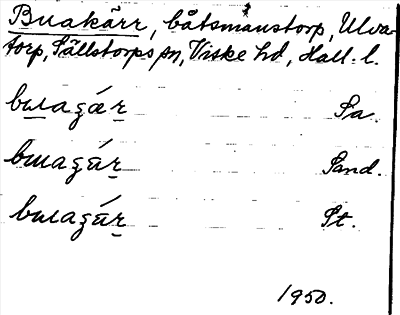 Buakärr, båtsmanstorp, Ulva-
torp, Sällstorps sn, Viske hd, Hall. l.
buagǽr Sa.
buagǽr Sand.
buagǽr St.
1950.